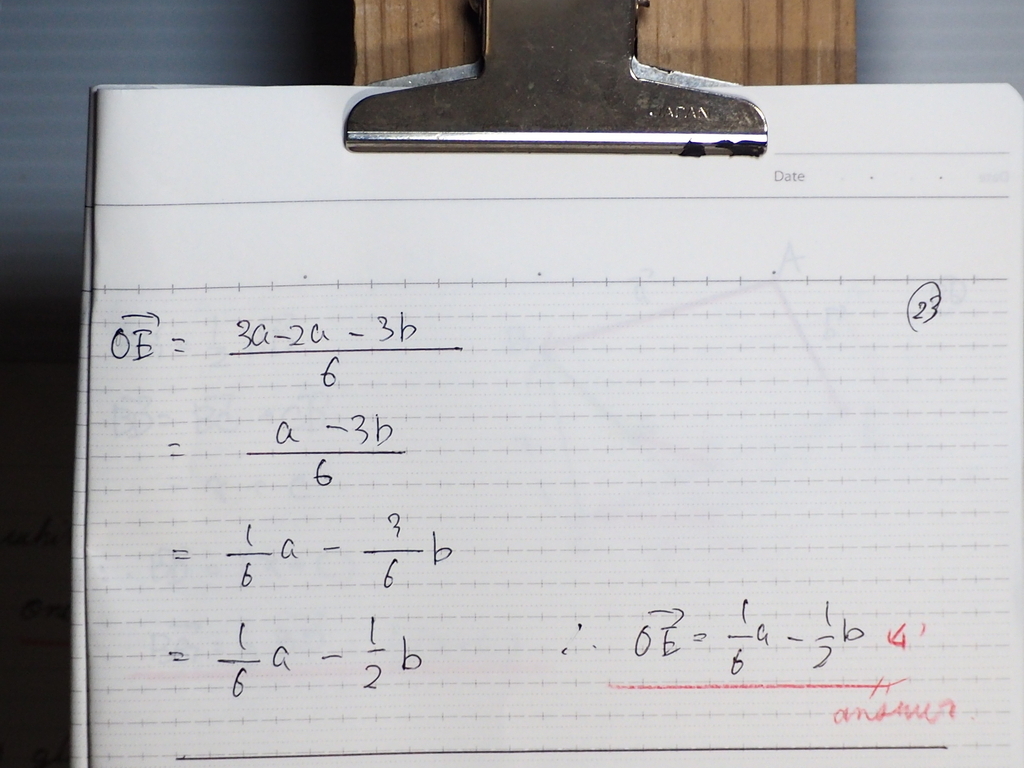 JAPAN
Date
23
OE = (3a-2a - 3b)/6
= (a - 3b)/6
= 1/6 a - 3/6 b
= 1/6 a - 1/2 b ∴ OE = 1/6 a - 1/2 b
answer.